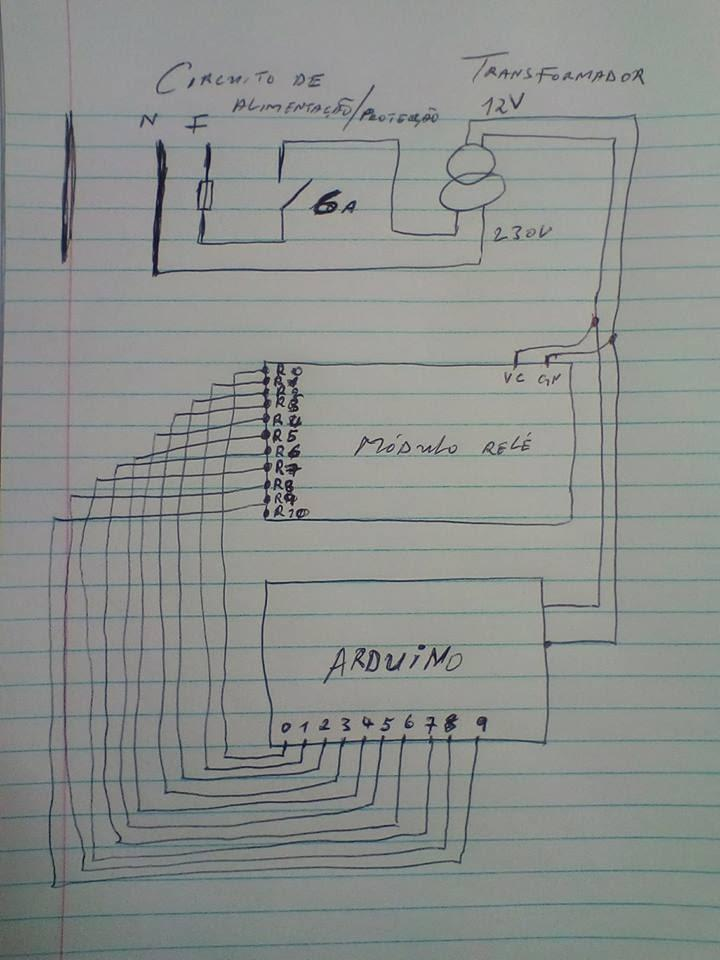 CIRCUITO DE
ALIMENTAÇÃO/PROTECÇÃO
TRANSFORMADOR
12V
N F
6A
230V
VC GN
R0
R1
R2
R3
R4
R5
R6
R7
R8
R9
R10
MÓDULO RELÉ
ARDUINO
0 1 2 3 4 5 6 7 8 9